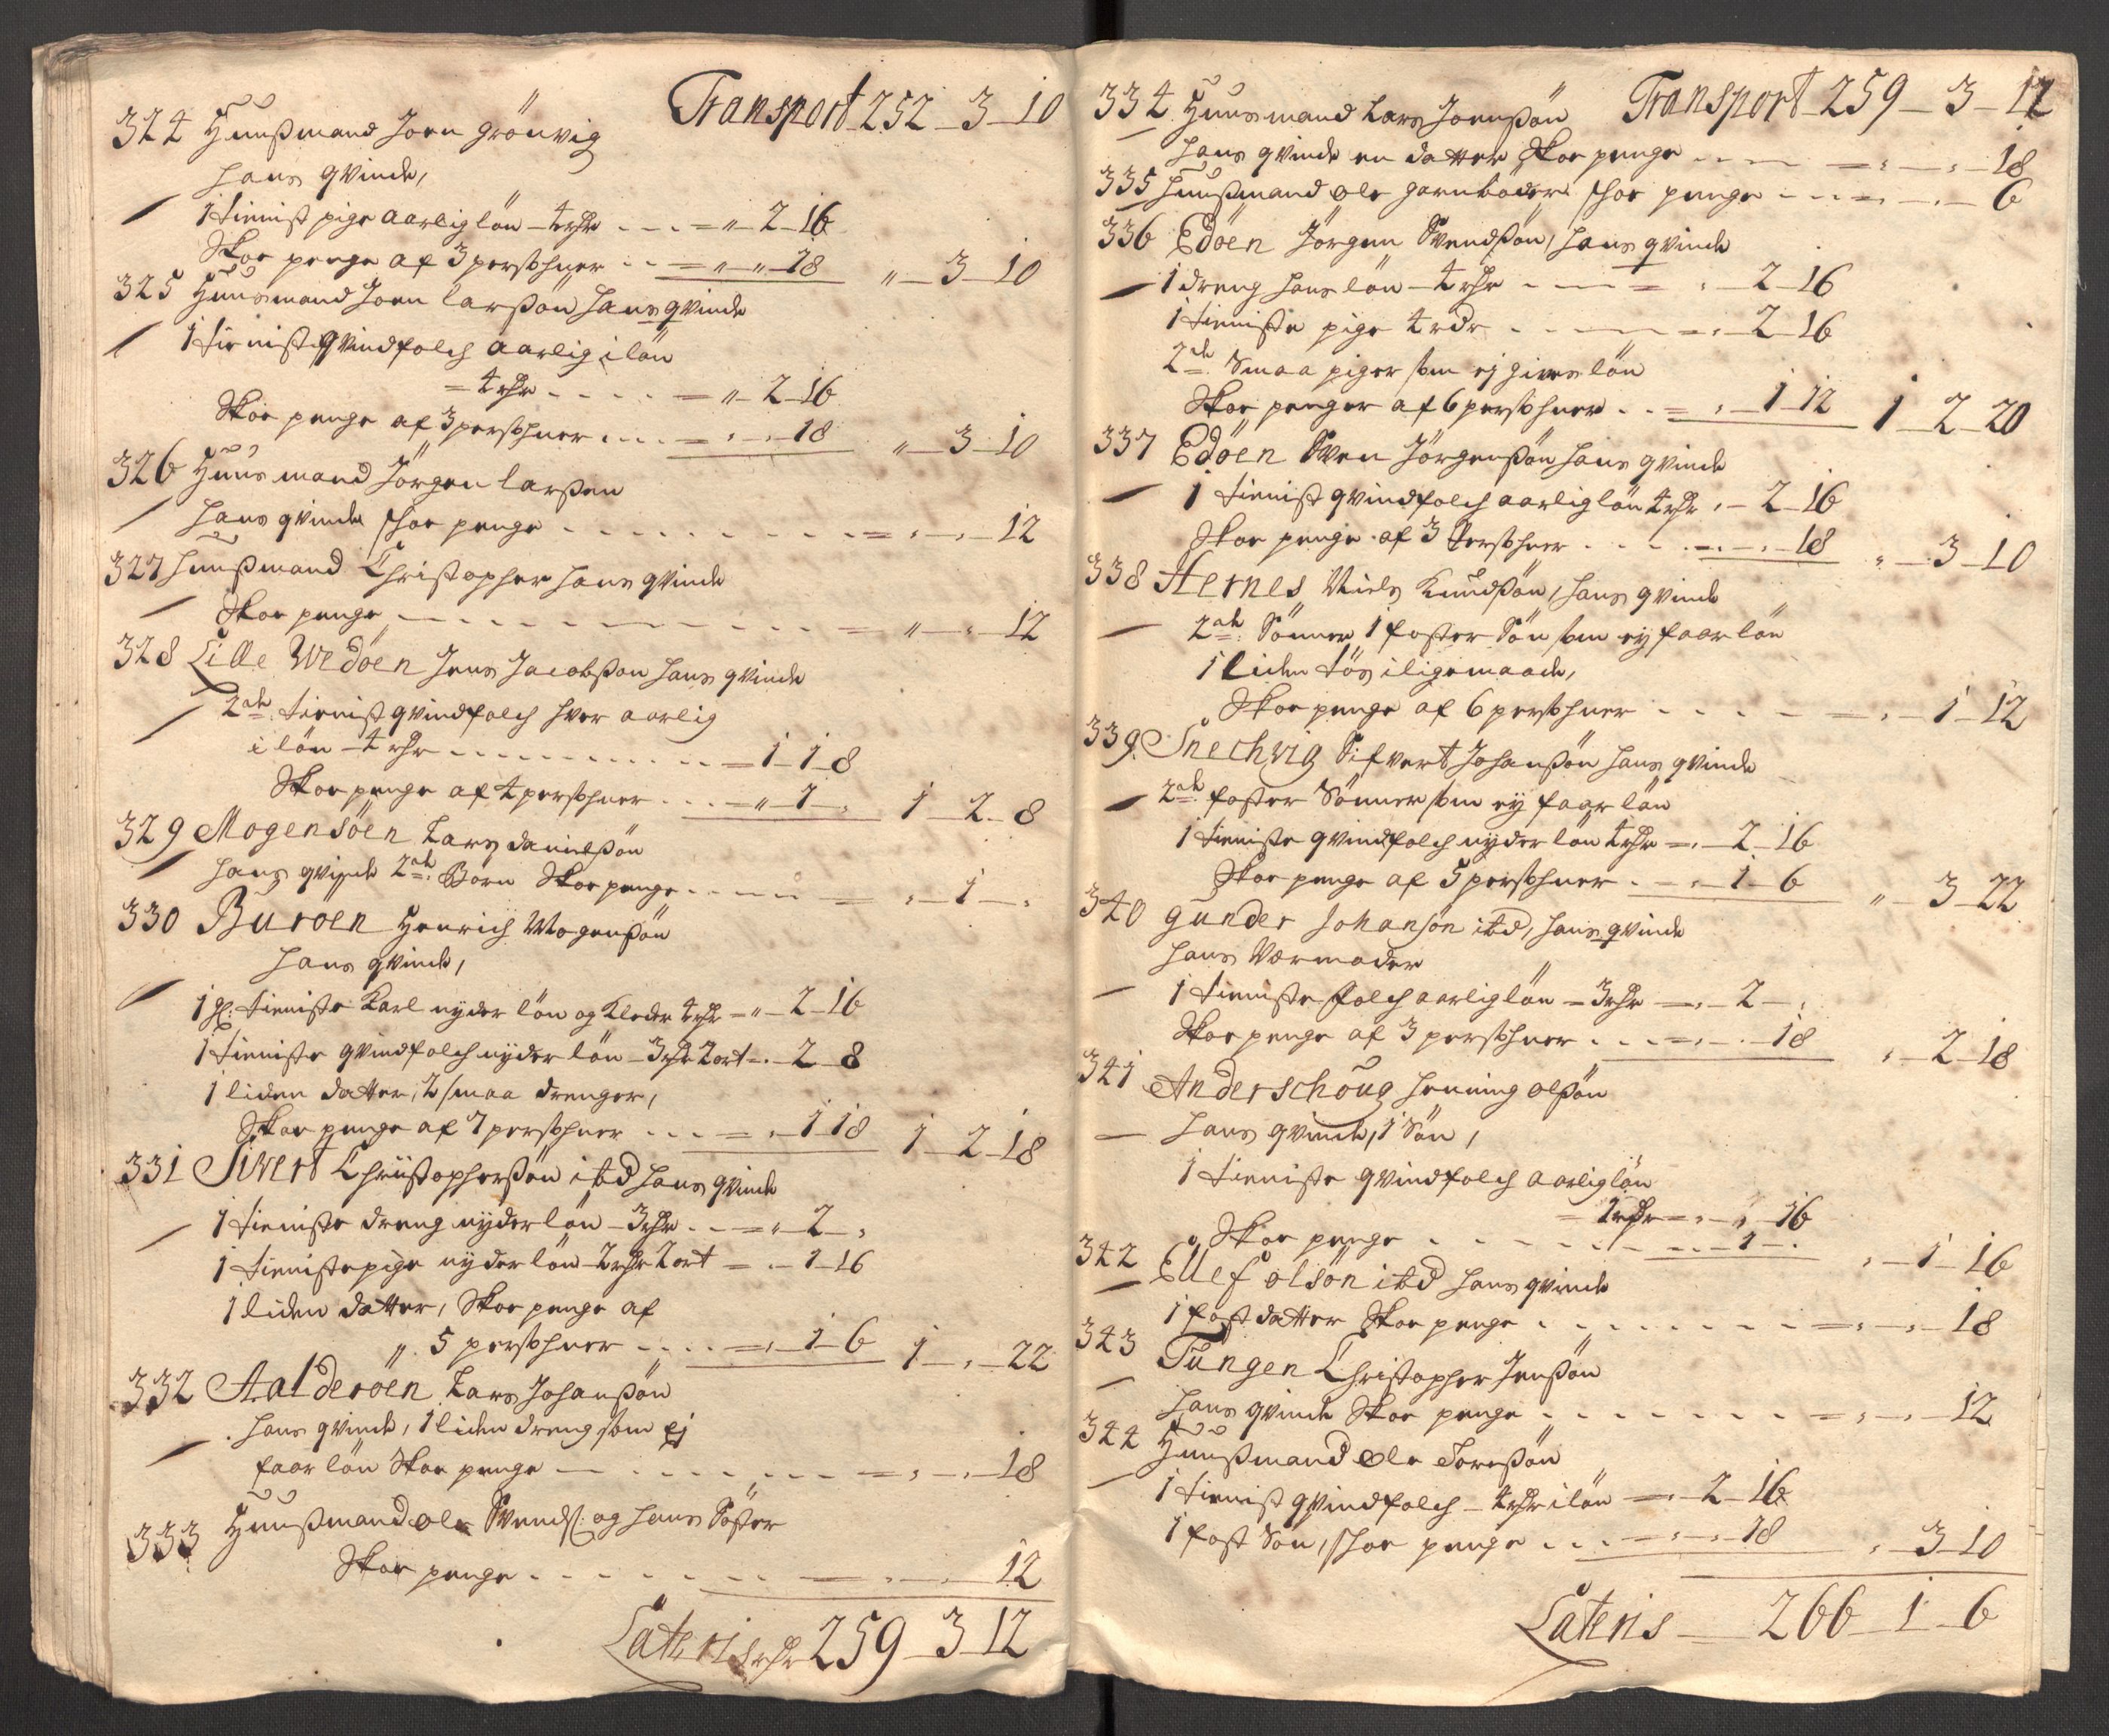 Transport 252 - 3 - 10
324 Huußmand Joen Grönvig
hans qvinde,
1 tienist pige aarlig lön - 4 rdr - - - = " - 2 - 16
Skoe penge af 3 persohner - - = " - " - 18 " - 3 - 10
325 Huusmand Joen larßön hans qvinde
1 tieniste qvindfolch aarlig i lön
= 4 rdr - - - - = " - 2 - 16
Skoe penge af 3 persohner - - - = " - " - 18 " - 3 - 10
326 Huusmand Jörgen larßen
hans qvinde skoe penge - - - - - - - - = " - " - 12
327 Huußmand Christopher hans qvinde
Skoe penge - - - - - - - - = " - " - 12
328 Lille Wedöen Jens Jacobßön hans qvinde
2de tienist qvindfolch hver aarlig
i lön - 4 rdr - - - - - - - - = 1 - 1 - 8
Skoe penge af 4 persohner - - - = " - 1 - " 1 - 2 - 8
329 Mogensöen Lars danielßön
hans qvinde 2de Börn Skoe penge - - - - = " - 1 - "
330 Buröen Henrich Mogenßön
hans qvinde,
1 gl: tieniste Karl nyder lön og Kleder 4 rdr - " - 2 - 16
1 tieniste qvindfolch nyder lön - 3 rdr 2 ort - " - 2 - 8
1 liden datter, 2 smaa drenger,
Skoe penge af 7 persohner - - - = " - 1 - 18 1 - 2 - 18
331 Sivert Christopherßön ibd hans qvinde
1 tieniste dreng nyder lön - 3 rdr - - = " - 2 - "
1 tieniste pige nyder lön - 2 rdr 2 ort = " - 1 - 16
1 liden datter, Skoe penge af
" 5 persohner - - - - = " - 1 - 6 1 - " - 22
332 Aalderöen Lars Johanßön
hans qvinde, 1 liden dreng som ej
faar lön Skoe penge - - - - - - - = " - " - 18
333 Huußmand Ole Svends: og hans Söster
Skoe penge - - - - - - = " - " - 12
Lateris rdr 259 - 3 - 12
Transport 259 - 3 - 12
334 Huusmand Lars Joenßön
hans qvinde en datter Skoe penge - - - = " - " - 18
335 Huußmand Ole garnböder skoe penge - - - = " - " - 6
336 Edöen Jörgen Svendßön, hans qvinde
1 dreng hans lön - 4 rdr - - - = " - 2 - 16
1 tieniste pige 4 rdr - - - - = " - 2 - 16
2de Smaa piger som ej gives lön
Skoe penger af 6 persohner - - = " - 1 - 12 1 - 2 - 20
337 Edöen Sven Jörgenßön hans qvinde
1 tienist qvindfolch aarlig lön 4 rdr " - 2 - 16
Skoe penge af 3 Persohner - - - - " - " - 18 " - 3 - 10
338 Hernes Niels Knudßön, hans qvinde
2de Sönner 1 foster Sön som ey faar lön
1 liden tös iligemaade,
Skoe penge af 6 persohner - - - - - = " - 1 - 12
339 Snechvig Sifvert Johanßön hans qvinde
2de foster Sönner som ey faar lön
1 tieniste qvindfolch nyder lön 4 rdr = " - 2 - 16
Skoe penge af 5 persohner - - " - 1 - 6 " - 3 - 22
340 Gunder Johansön ibd, hans qvinde
hans Vermoder
1 tieniste folch aarlig lön - 3 rdr = " - 2 - "
Skoe penge af 3 persohner - - - = " - " - 18 " - 2 - 18
341 Anderschoug Henning Olßön
hans qvinde, 1 Sön,
1 tieniste qvindfolch aarlig lön
= 1 rdr = " - " - 16
Skoe penge - - - - - - - - - 1 - " " - 1 - 16
342 Ellef Olsön ibd hans qvinde
1 fost datter Skoe penge - - - - - - - = " - " - 18
343 Tungen Christopher Jenßön
hans qvinde Skoe penge - - - - - - - = " - " - 12
344 Huußmand Ole Toreßön
1 tienist qvindfolch - 4 rdr i lön = " - 2 - 16
1 fost Sön, skoe penge - - - = " - " - 18 " - 3 - 10
Lateris - 266 - 1 - 6